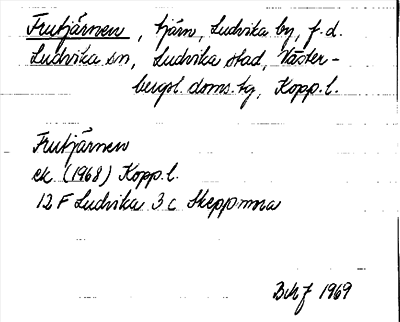 Frutjärnen, tjärn, Ludvika by, f.d.
Ludvika sn, Ludvika stad, Väster-
bergsl. doms.tg, Kopp.l.
Frutjärnen
ek. (1968) Kopp.l.
12 F Ludvika 3 c Skeppmora
1969